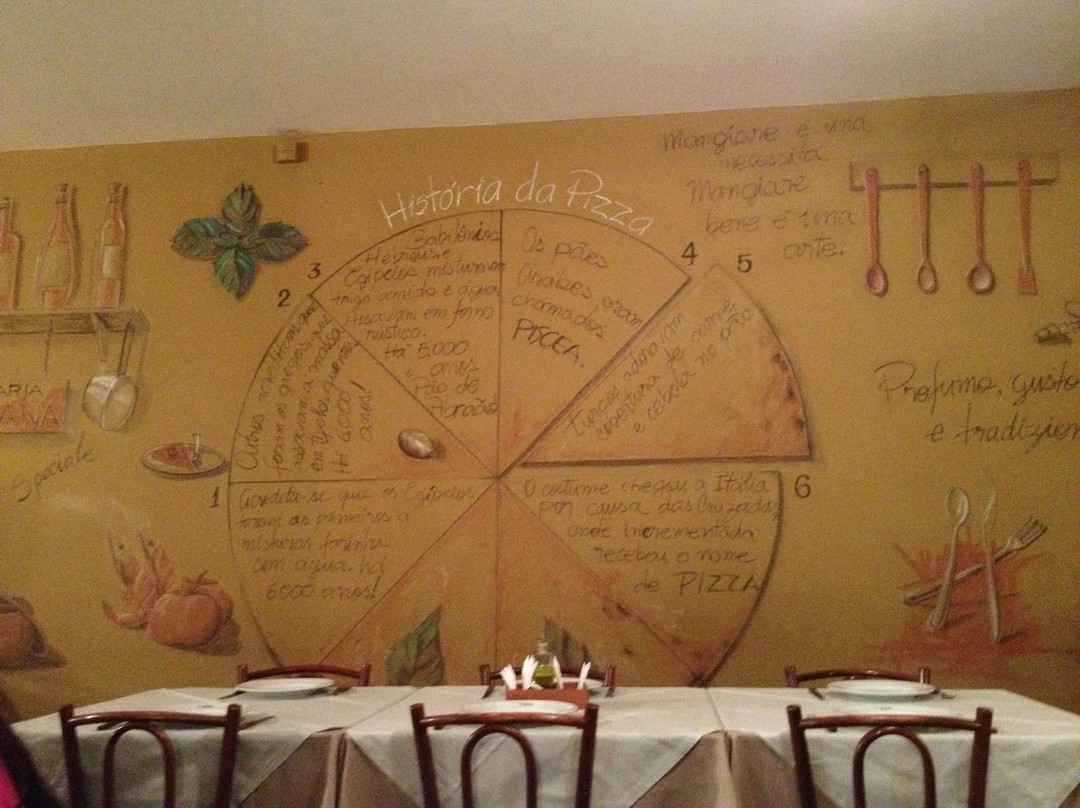 História da Pizza
1
Acredita-se que os Egípcios
foram os primeiros a
misturar farinha
com água, há
6000 anos!
2
Outros
foram os gregos que
assavam a massa
em tijolos quentes
Há 6000
anos!
3
Babilônios
Hebreus e
Egípcios misturavam
trigo amido e água
Assavam em forno
rústico.
Há 5.000
anos
"Pão de
4
Os pães
Árabes eram
chamados
PISCEA.
5
Turcos adoravam
cobertura de carne
e cebola no pão
6
O costume chegou a Itália
por causa das Cruzadas
onde incrementada
recebeu o nome
de PIZZA
Mangiare é una
necessitá.
Mangiare
bene é una
arte.
Profumo, gusto
e tradizion
ARIA
ANA
Speciale